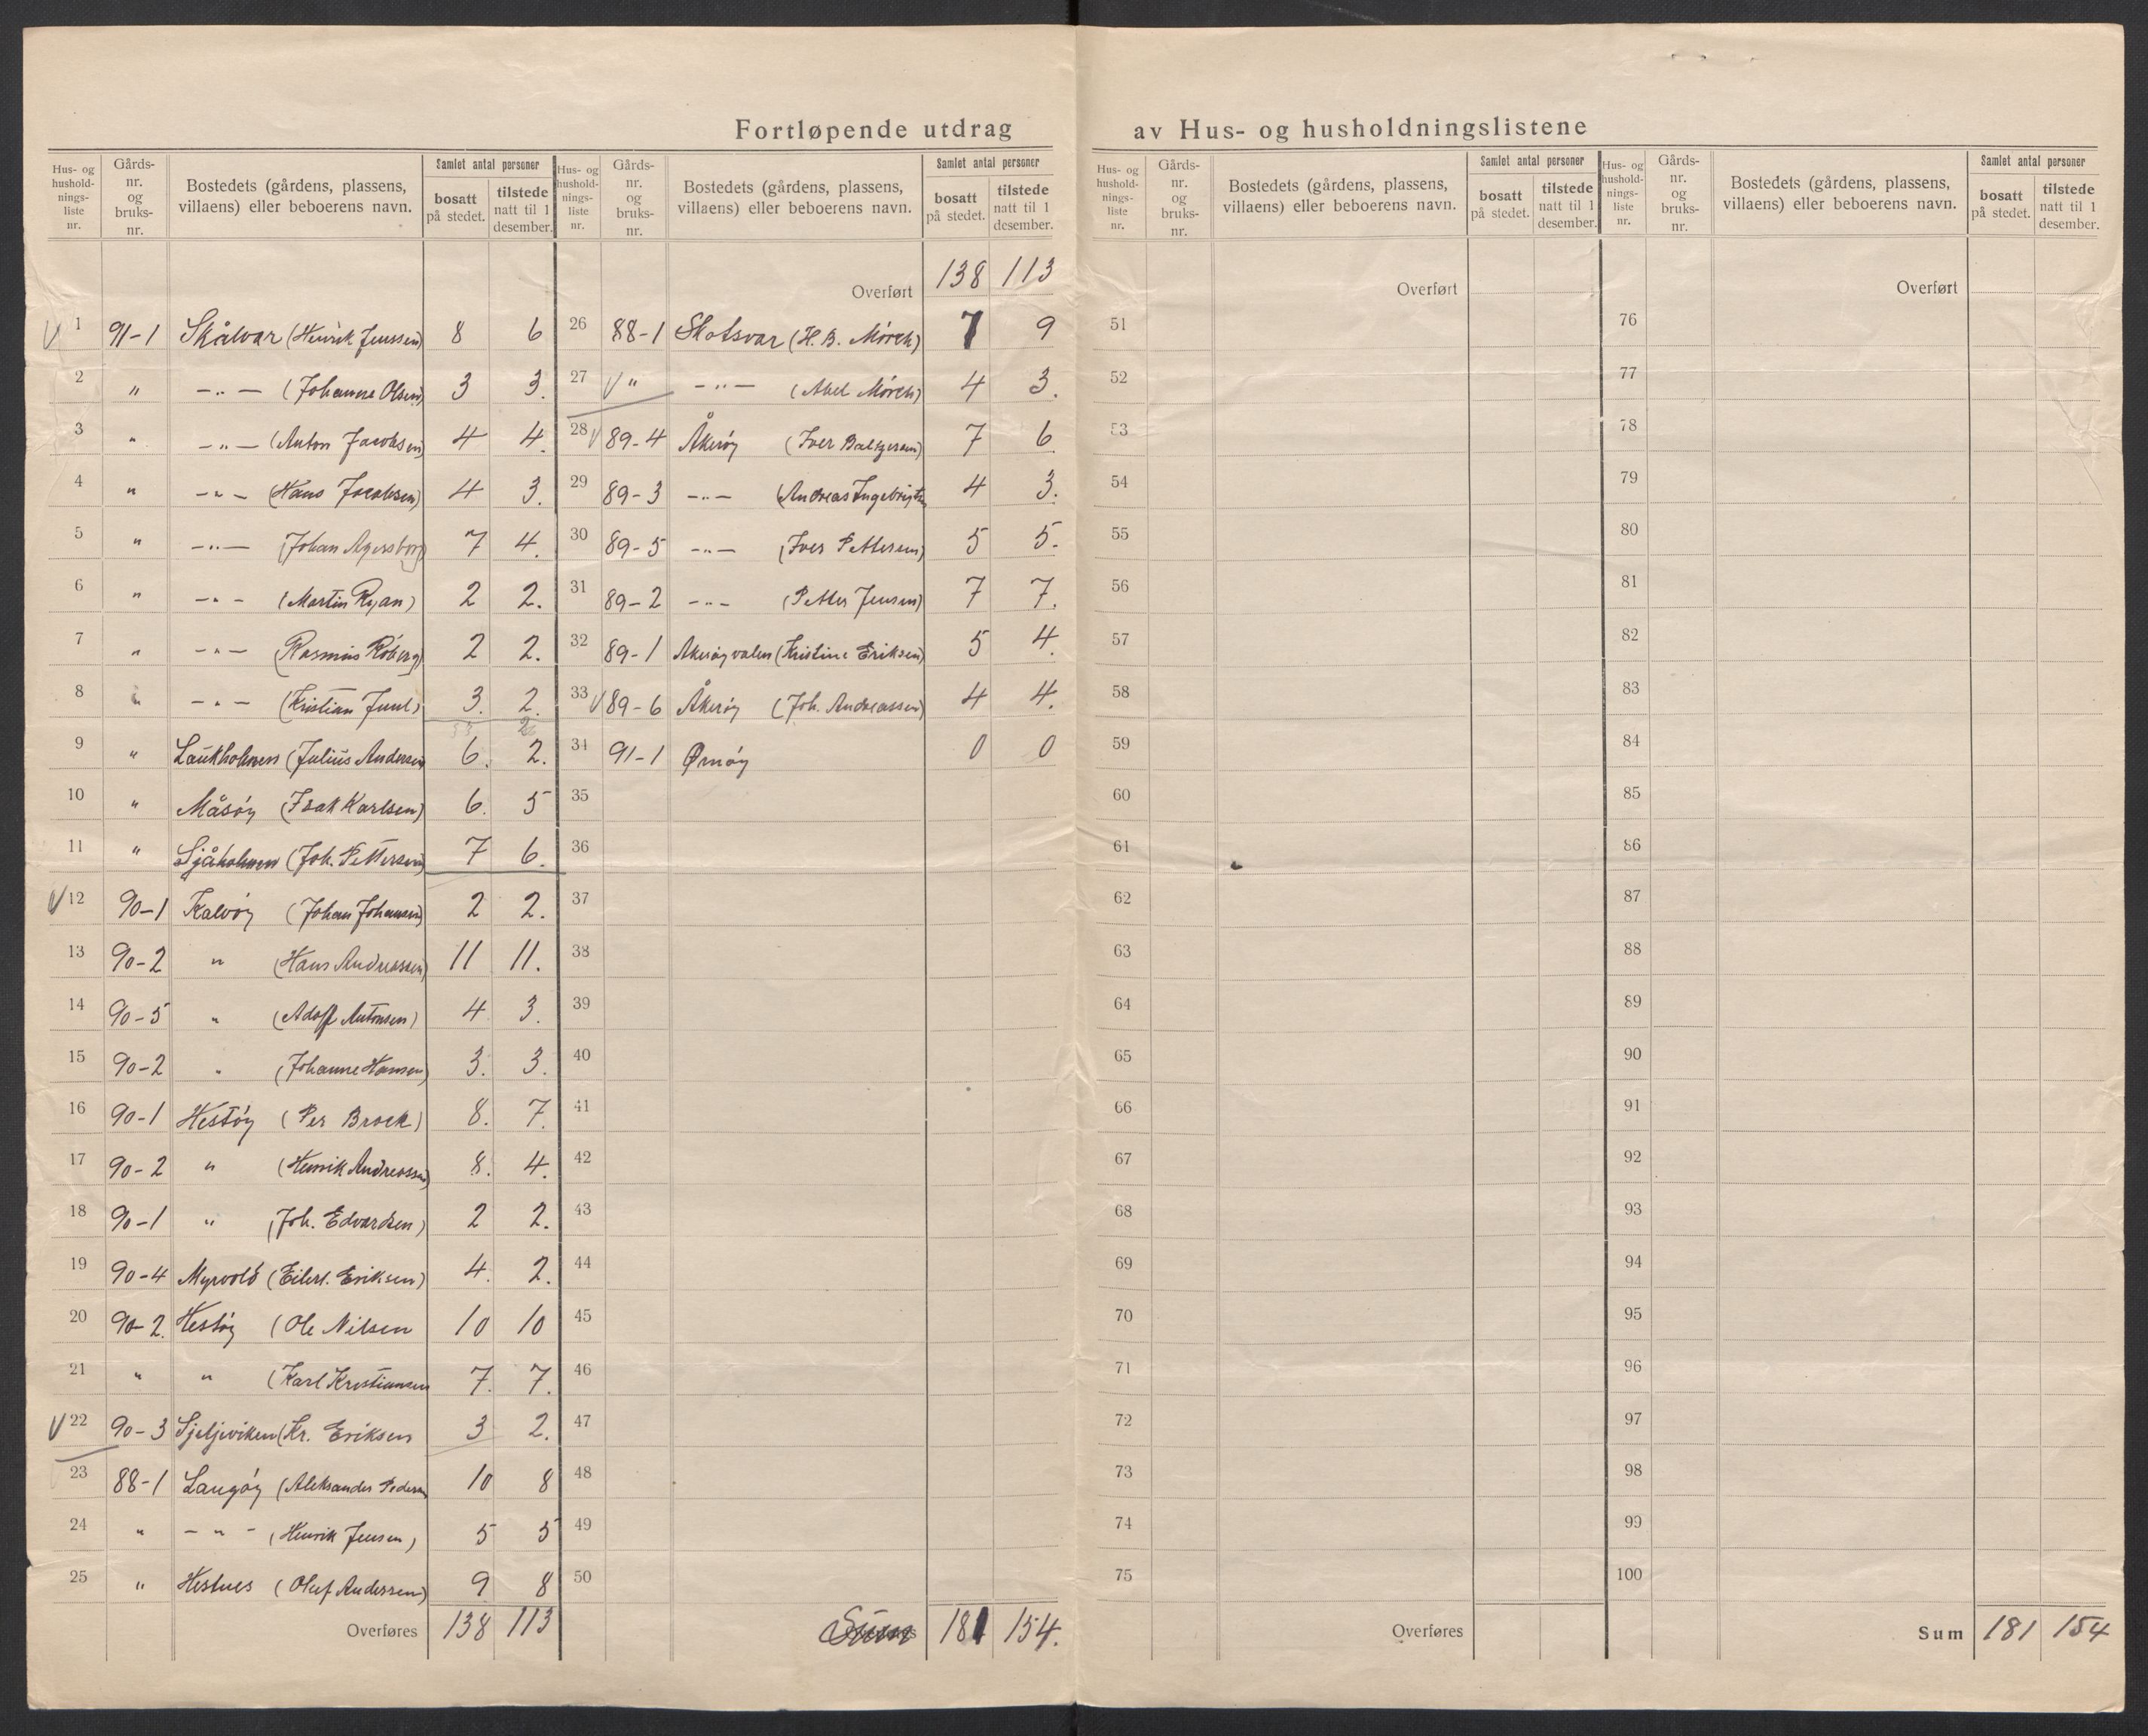 Fortløpende utdrag av Hus- og husholdningslistene
Hus- og hushold-nings-liste nr. | Gårds-nr. og bruks-nr. | Bostedets (gårdens, plassens, villaens) eller beboerens navn. | Samlet antal personer | bosatt på stedet. | tilstede natt til 1 desember.
Hus- og hushold-nings-liste nr. | Gårds-nr. og bruks-nr. | Bostedets (gårdens, plassens, villaens) eller beboerens navn. | Samlet antal personer | bosatt på stedet. | tilstede natt til 1 desember.
1 91-1 Skålvar (Henrik Jenssen) 8 6
2 " -"- (Johanne Olsen) 3 3.
3 " -"- (Anton Jacobsen) 4 4.
4 " -"- (Hans Jacobsen) 4 3.
5 " -"- (Johan Agersborg) 7 4.
6 " -"- (Martin Ryan) 2 2.
7 " -"- (Rasmus Röberg) 2 2.
8 " -"- (Kristian Juul) 3. 2.
9 " Laukholmen (Julius Andersen 6. 2.
10 " Måsøy (Isak Karlsen) 6. 5
11 " Sjåholmen (Joh. Pettersen) 7 6.
12 90-1 Kalvøy (Johan Johansen) 2 2.
13 90-2 " (Hans Andreassen) 11 11.
14 90-5 " (Adolf Antonsen) 4 3.
15 90-2 " (Johanne Hansen) 3. 3.
16 90-1 Hestøy (Per Brock) 8. 7.
17 90-2 " (Henrik Andreassen) 8. 4.
18 90-1 " (Joh. Edvardsen) 2 2.
19 90-4 Myrvold (Eilert. Eriksen) 4. 2.
20 90-2. Hestøy (Ole Nilsen 10 10
21 " " (Karl Kristiansen 7. 7.
22 90-3 Sjeljeviken (Kr. Eriksen 3 2.
23 88-1 Langøy (Aleksander Pedersen 10 8
24 " -"- (Henrik Jensen) 5 5
25 " Hestnes (Oluf Andersen) 9 8
Overføres 138 113
Overført 138 113
26 88-1 Skotsvær (H. B. Mörch) 7 9
27 " -"- (Abel Mörch) 4 3.
28 89-4 Åkerøy (Iver Baltzersen) 7 6
29 89-3 -"- (Andreas Ingebrigtsen 4 3.
30 89-5 -"- (Iver Pettersen) 5 5.
31 89-2 -"- (Petter Jensen) 7 7.
32 89-1 Åkerøyvalen (Kristine Eriksen) 5 4.
33 89-6 Åkerøy (Joh. Andreassen) 4 4.
34 91-1 Ømøy 0 0
35
36
37
38
39
40
41
42
43
44
45
46
47
48
49
50
Sum 181 154.
Hus- og hushold-nings-liste nr. | Gårds-nr. og bruks-nr. | Bostedets (gårdens, plassens, villaens) eller beboerens navn. | Samlet antal personer | bosatt på stedet. | tilstede natt til 1 desember.
Hus- og hushold-nings-liste nr. | Gårds-nr. og bruks-nr. | Bostedets (gårdens, plassens, villaens) eller beboerens navn. | Samlet antal personer | bosatt på stedet. | tilstede natt til 1 desember.
Overført
51
52
53
54
55
56
57
58
59
60
61
62
63
64
65
66
67
68
69
70
71
72
73
74
75
Overføres
Overført
76
77
78
79
80
81
82
83
84
85
86
87
88
89
90
91
92
93
94
95
96
97
98
99
100
Sum 181 154